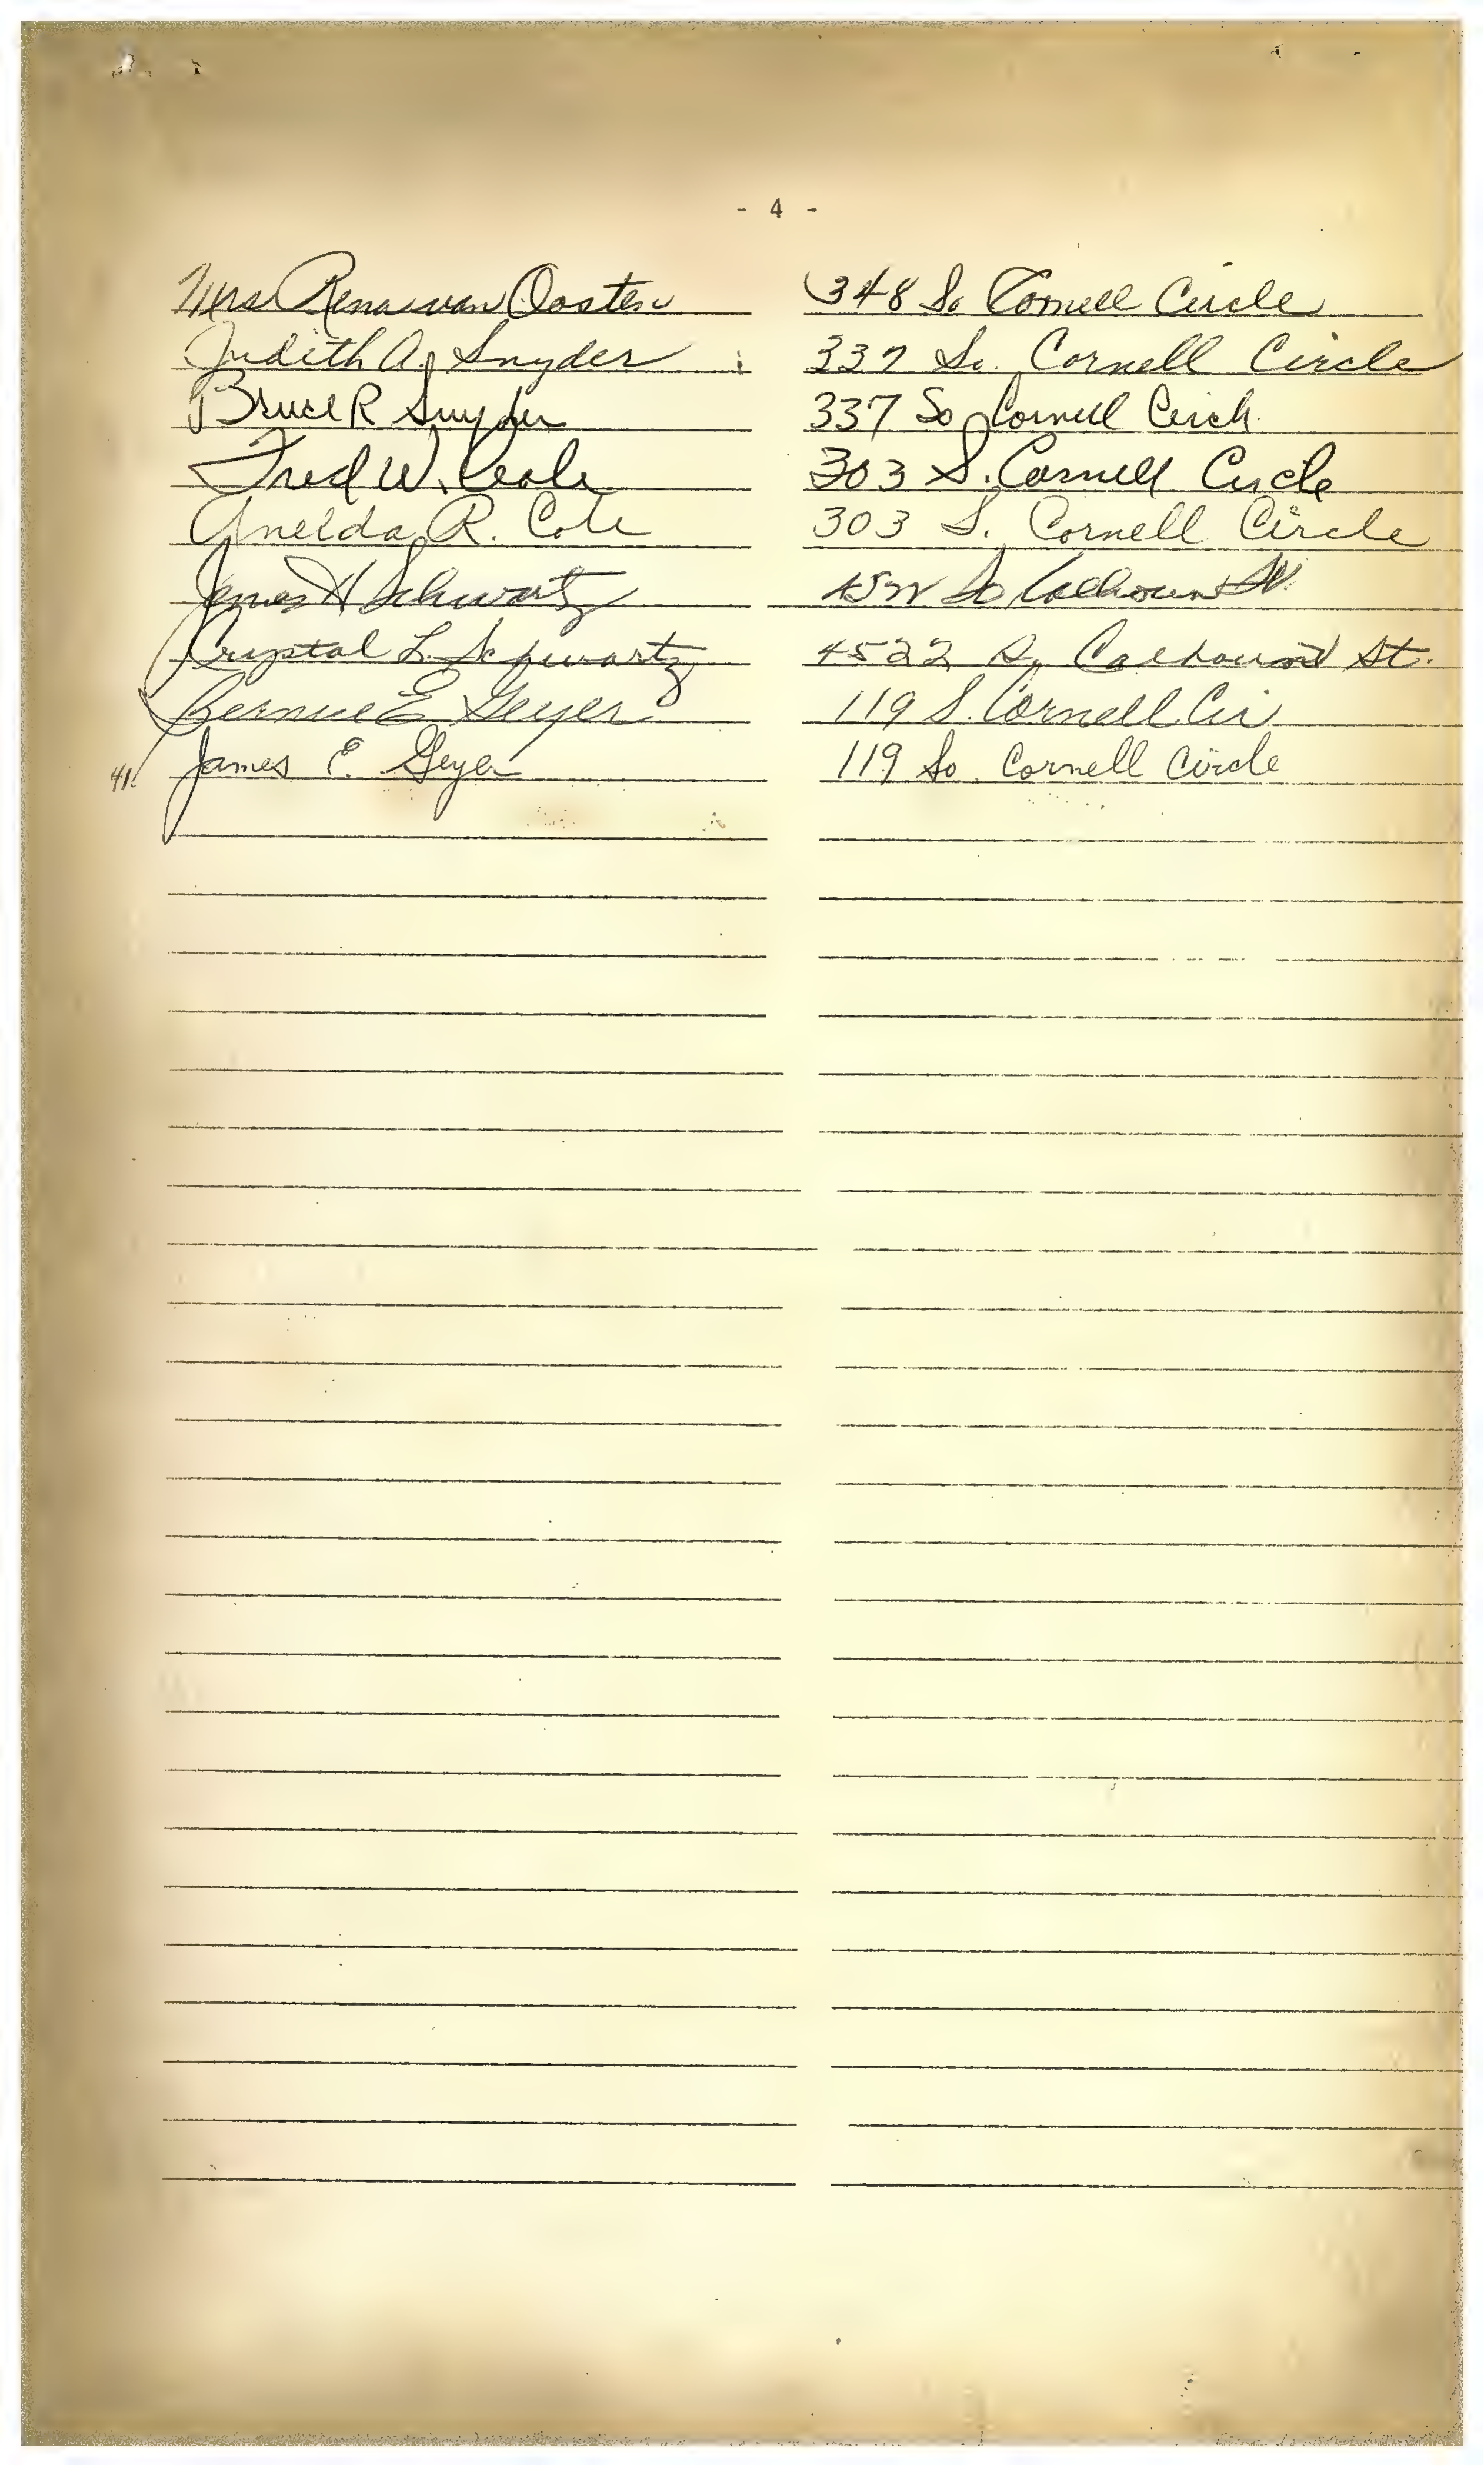 - 4 -
Mrs Rena van Oosten 348 So Cornell Circle
Judith A. Snyder 337 So. Cornell Circle
Bruce R Snyder 337 So Cornell Circle
Fred W. Cole 303 S. Cornell Circle
Oneida R. Cole 303 S. Cornell Circle
James H Schwartz 4522 So Calhoun St.
Crystal L. Schwartz 4522 S. Calhoun St.
Bernice E Geyer 119 S. Cornell Cir
41 James E. Geyer 119 So. Cornell Circle